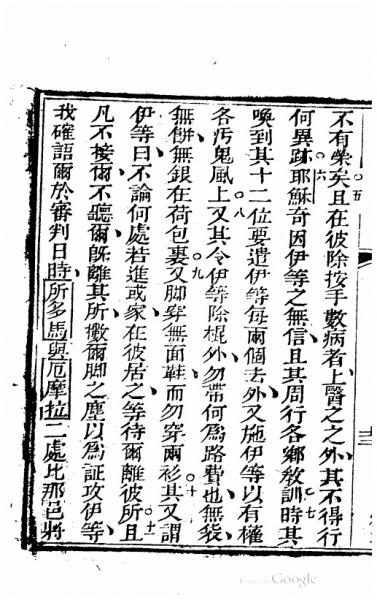 不有榮矣且在彼除按手數病者上醫之之外其不得行
何異跡耶穌奇因伊等之無信且其周行各鄉敎訓時其
喚到其十二位要遣伊等每兩個去外又施伊等以有權
各汚鬼風上又其令伊等除棍外勿帶何爲路費也無袋
無餅無銀在荷包裏又脚穿無面鞋而勿穿兩衫其又謂
伊等曰不論何處若進或家在彼居之等待爾離彼所且
凡不接爾不聽爾旣離其所擻爾脚之塵以爲証攻伊等
我確語爾於審判日時所多馬與厄摩拉二處比那邑將
Google